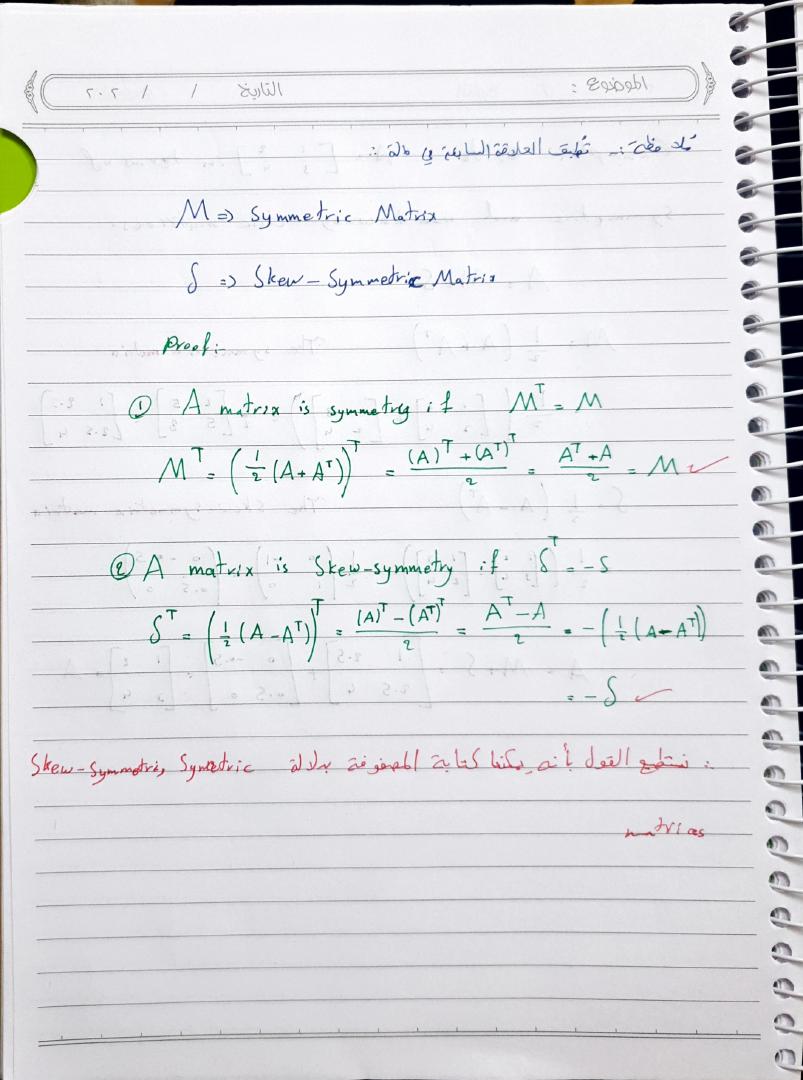 الموضوع : التاريخ / / ٢٠٢
مُلاحظة :- تُطبق العلاقة السابقة في حالة :
M => Symmetric Matrix
S => Skew-Symmetric Matrix
Proof:-
① A matrix is symmetry if M^T = M
M^T = (1/2 (A+A^T))^T = ((A)^T + (A^T)^T)/2 = (A^T + A)/2 = M ✓
② A matrix is Skew-symmetry if S^T = -S
S^T = (1/2 (A-A^T))^T = ((A)^T - (A^T)^T)/2 = (A^T - A)/2 = -(1/2 (A-A^T))
= -S ✓
∴ نستطيع القول بأنه يمكننا كتابة المصفوفة بدلالة Skew-Symmetric, Symetric
matrices